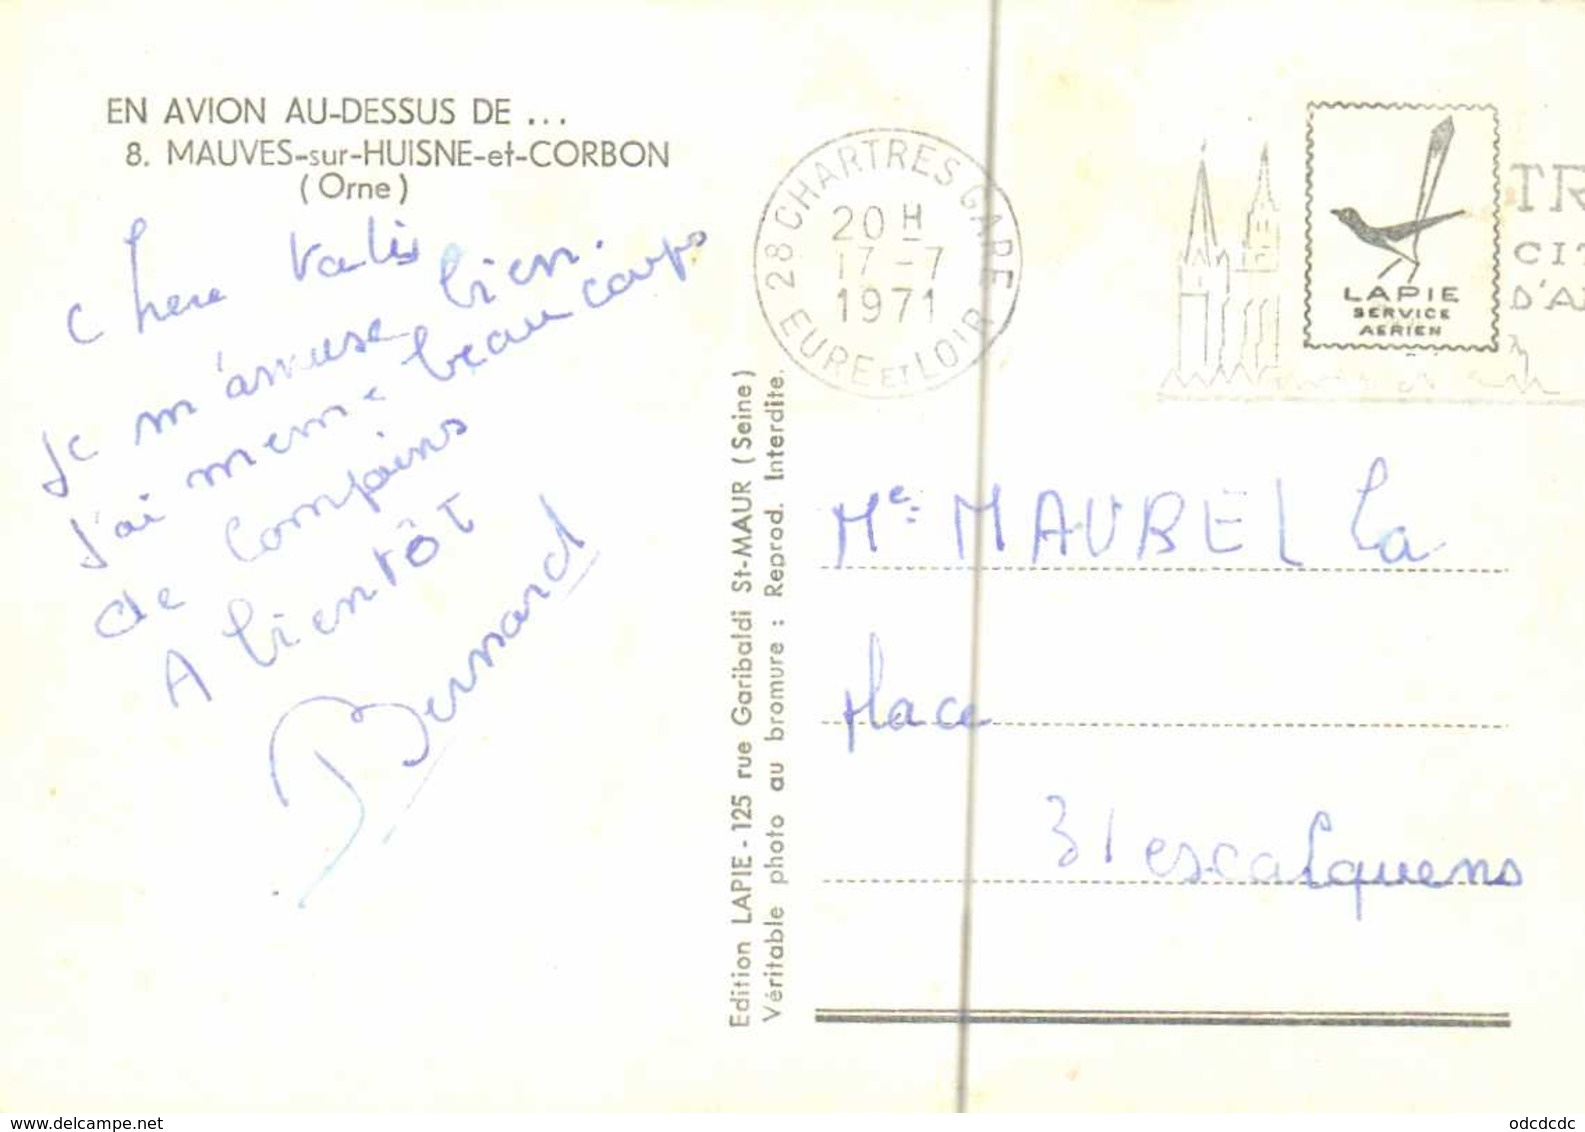 EN AVION AU-DESSUS DE ...
8. MAUVES-sur-HUISNE-et-CORBON
(Orne)
Chere
Je m'amuse bien.
J'ai meme beaucoups
de compains
A bientôt
Bernard
Edition LAPIE - 125 rue Garibaldi St-MAUR (Seine)
Véritable photo au bromure : Reprod. Interdite.
28 CHARTRES GARE
20 H
17 -7
1971
EURE ET LOIR
LAPIE
SERVICE
AERIEN
TR
CIT
D'A
Me MAUREL La
Place
31 escalquens
www.delcampe.net
odcdcdc